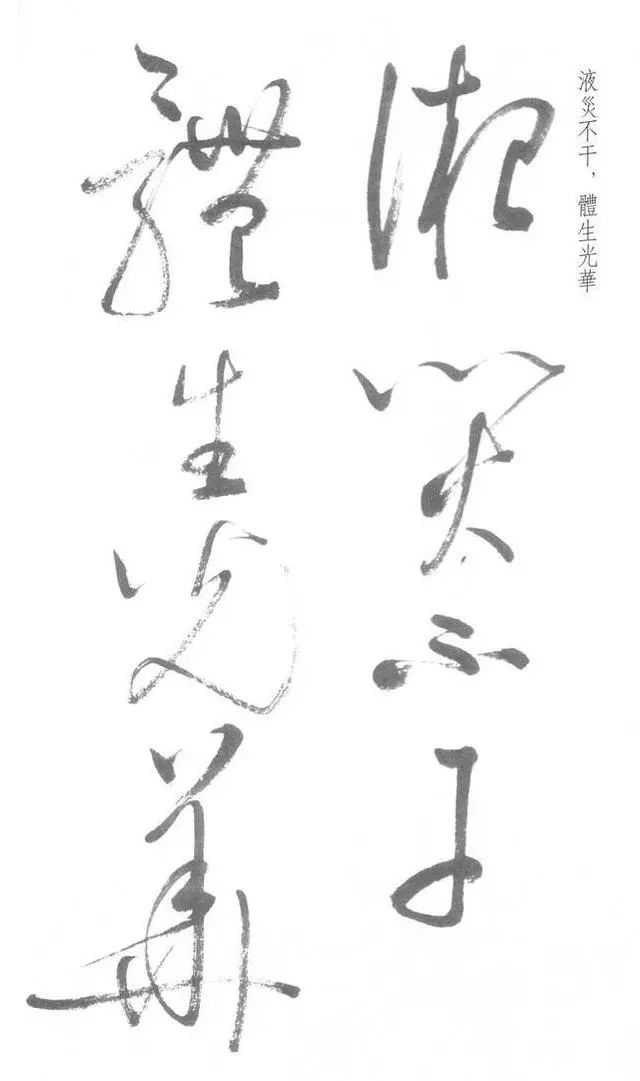 液災不干，體生光華
液災不干
體生光華